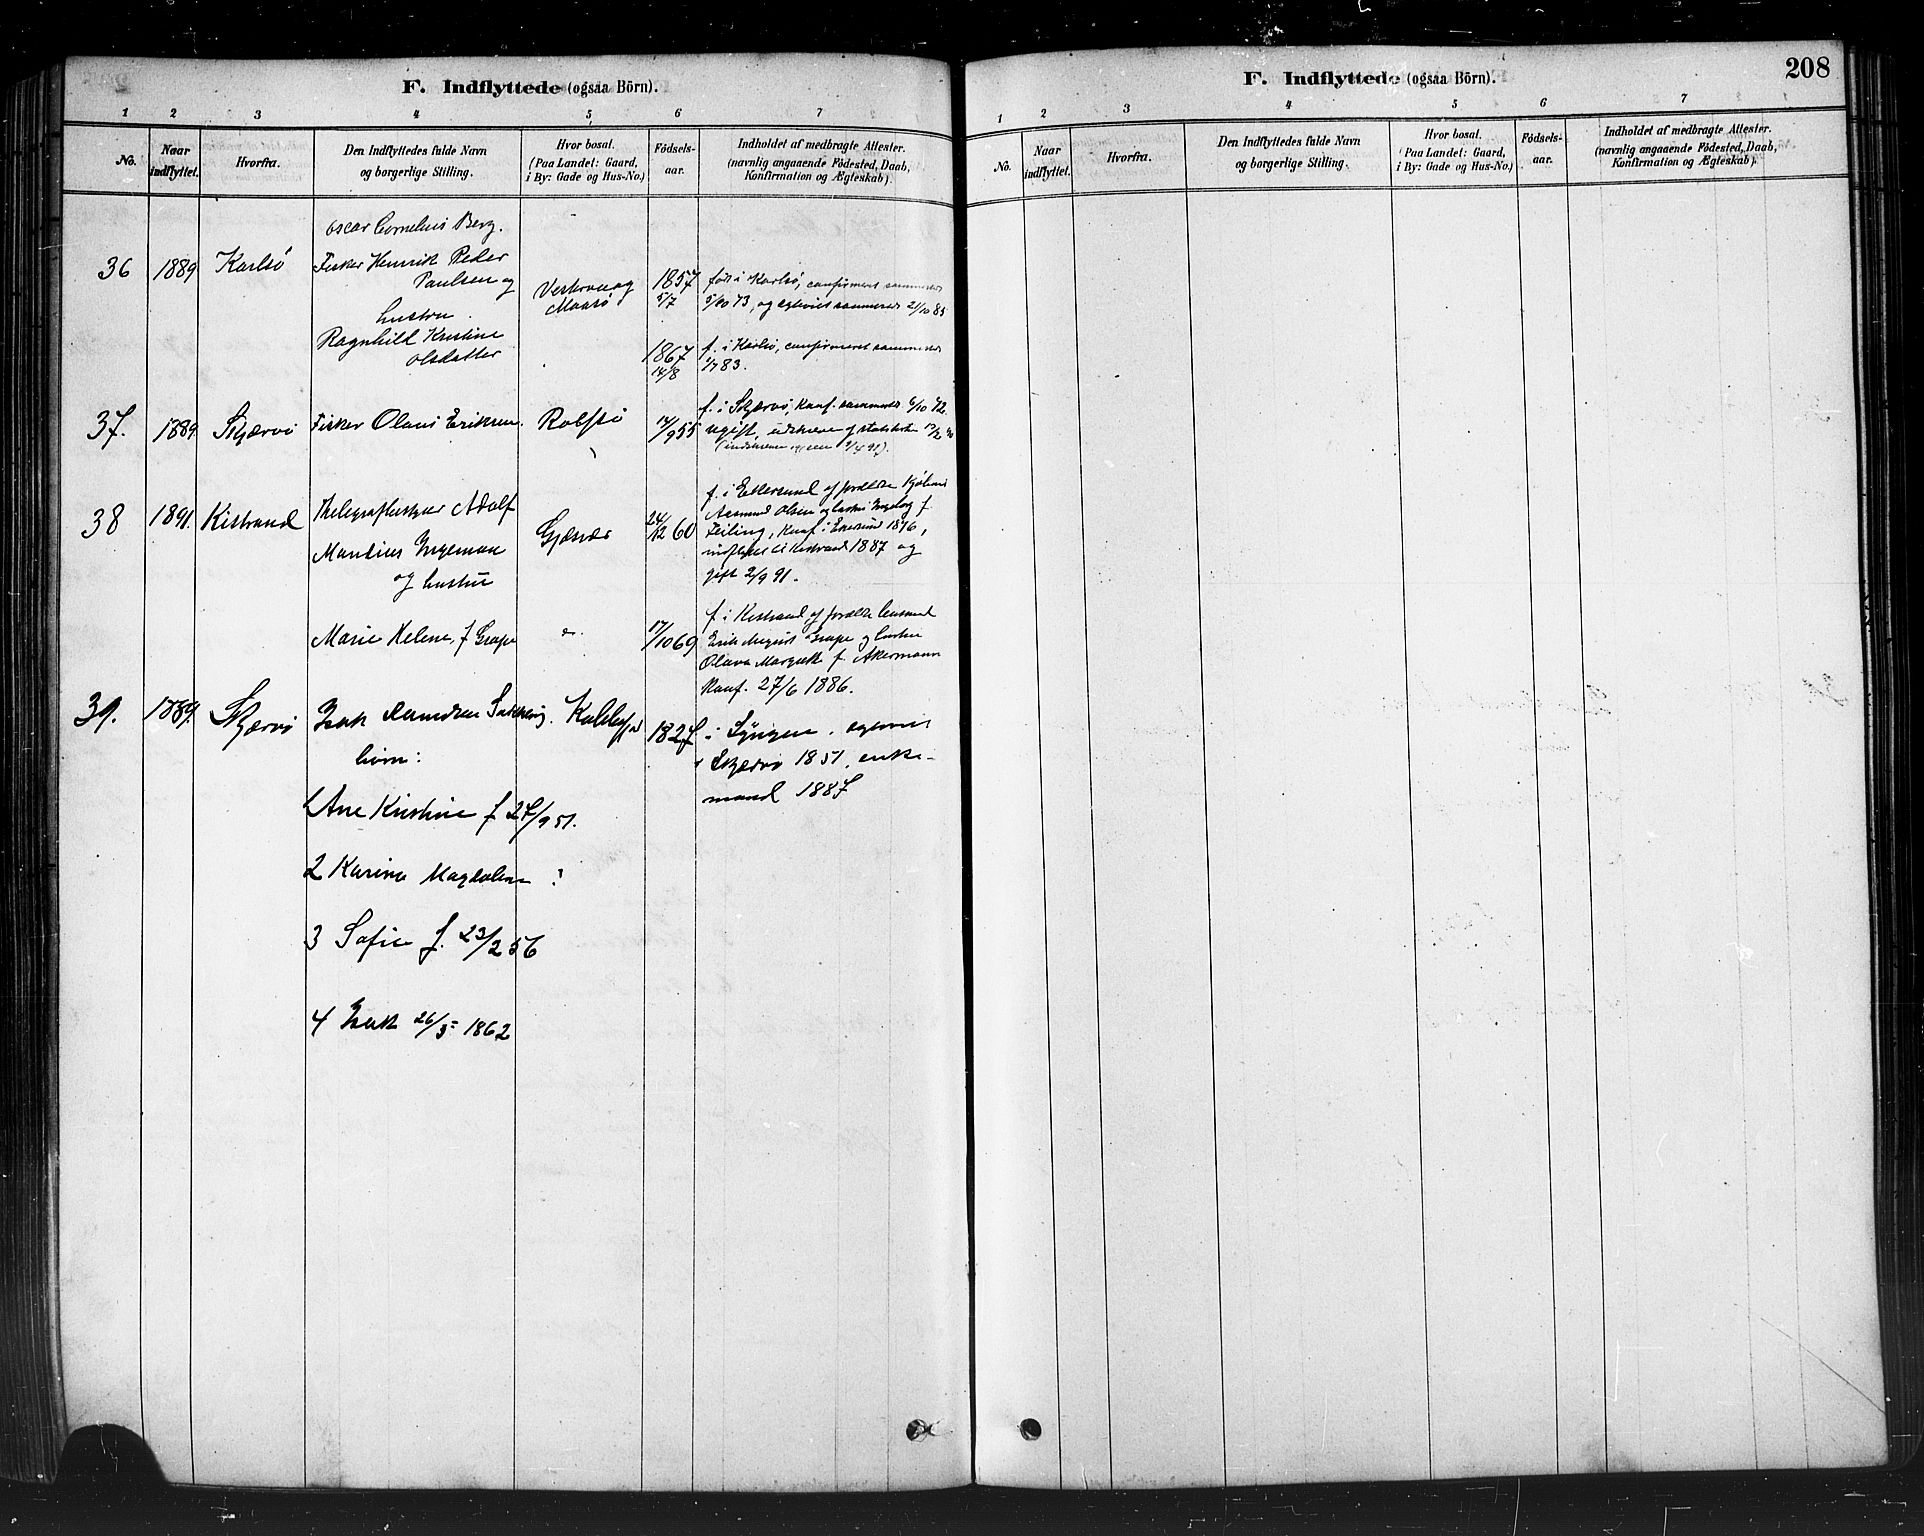 F. Indflyttede (ogsaa Börn).
1 2 3 4 5 6 7
No.
Naar indflyttet.
Hvorfra.
Den Indflyttedes fulde Navn
og borgerlige Stilling.
Hvor bosat.
(Paa Landet: Gaard,
i By: Gade og Hus-No.)
Födsels-
aar.
Indholdet af medbragte Attester.
(navnlig angaaende Födested, Daab,
Konfirmation og Ægteskab).
Oscar Cornelius Berg.
36 1889 Karlsö Fisker Henrik Peder
Paulsen og
hustru
Ragnhild Kristine
Olsdatter
Maasö
1857
5/7
født i Karlsö, confirmeret sammesteds
5/10 73, og sammesteds 21/10 85
1867
14/8
f. i Karlsö, confirmeret sammesteds
1/7 83.
37. 1889 Skjervö Fisker Olaus Eriksen. Rolfsö 14/9 55
f. i Skjervö, Konf. sammesteds 6/10 72.
ugift,
38 1891. Kistrand Adolf
Ingeman
og hustru
Gjesvær
24/12 60
f. i Ekersund af forældre
Aasmund Olsen og hustru Ingeborg f.
Feiling, Konf. i Ekersund 1876,
indflyttet til Kistrand 1887 og
gift 2/9 91.
Marie Helene, f. Grape
17/10 69
f. i Kistrand af forældre
Erik August Grape og hustru
Olava Margrethe f. Akermann
Konf. 27/6 1886.
39. 1889. Skjervö Isak
börn:
1827 i Lyngen.
i Skjervö 1851, enke-
mand 1887
1 Ane Kristine f 27/9 51.
2 Karina Magdalena ?
3 Sofie f. 23/2 56
4 Isak 26/5 1862
208
F. Indflyttede (ogsaa Börn).
1 2 3 4 5 6 7
No.
Naar indflyttet.
Hvorfra.
Den Indflyttedes fulde Navn
og borgerlige Stilling.
Hvor bosat.
(Paa Landet: Gaard,
i By: Gade og Hus-No.)
Födsels-
aar.
Indholdet af medbragte Attester.
(navnlig angaaende Födested, Daab,
Konfirmation og Ægteskab).